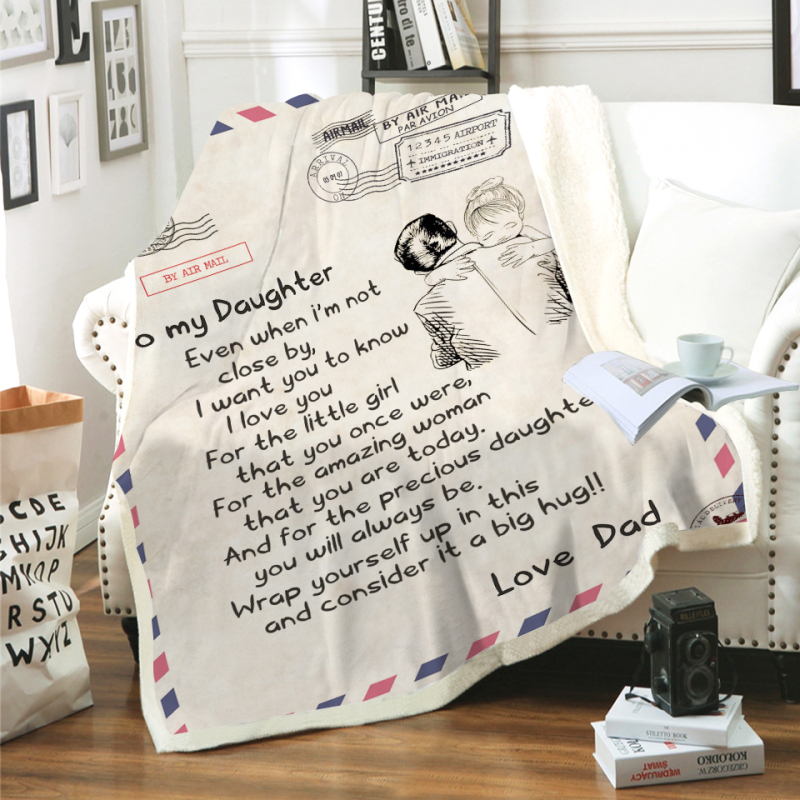 CENTU
AIRMAIL
BY AIR MA
PAR AVION
12345 AIRPORT
IMMIGRATION
ARRIVAL
BY AIR MAIL
o my Daughter
Even when i'm not
close by,
I want you to know
I love you
For the little girl
that you once were,
For the amazing woman
that you are today.
And for the precious daughte
you will always be.
Wrap yourself up in this
and consider it a big hug!!
Love Dad
CDE
HIJK
R STU
WXYZ
ROLLEIFLEX
GRZEGORZ W.
KOŁODKO
WĘDRUJĄCY
ŚWIAT